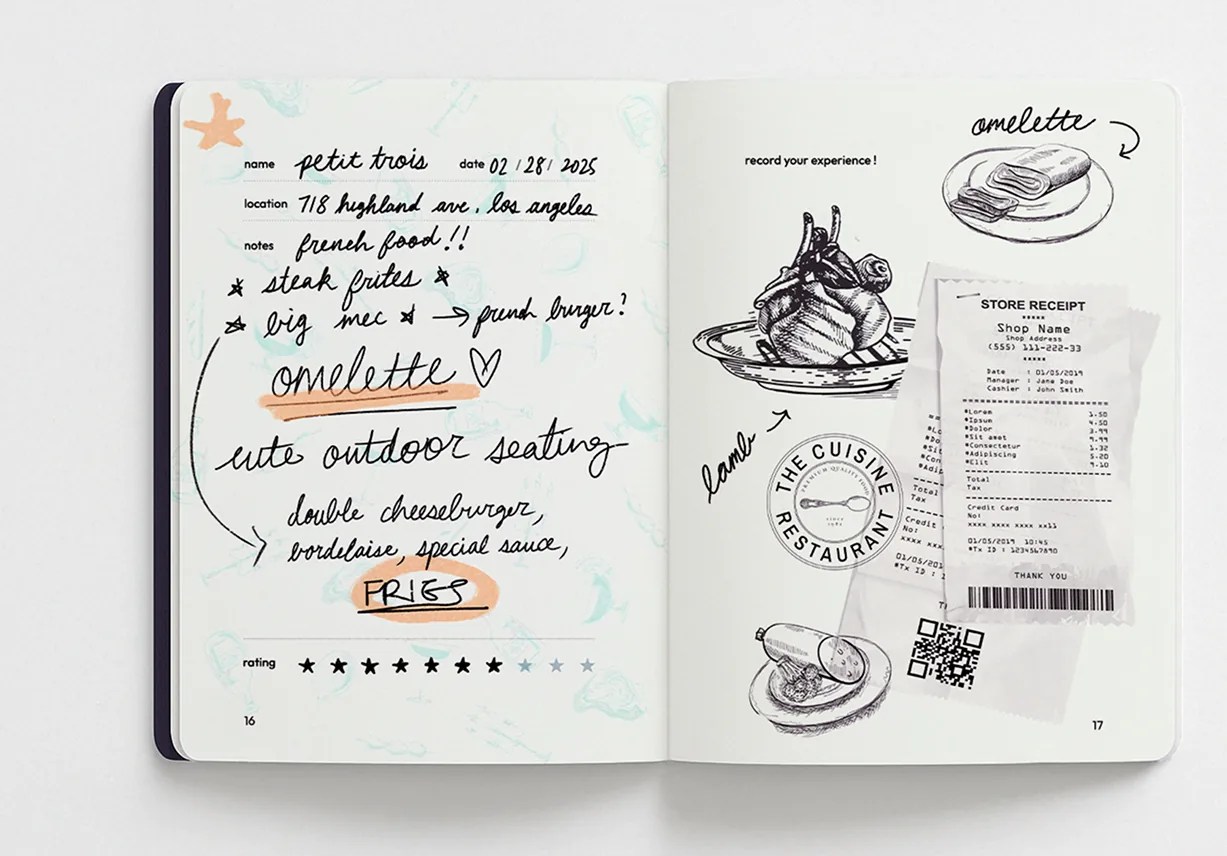 name petit trois date 02 / 28 / 2025
location 718 highland ave. los angeles
notes french food!!
steak frites
big mec → french burger?
omelette
cute outdoor seating
double cheeseburger,
bordelaise, special sauce,
FRIES
rating
16
omelette
record your experience !
STORE RECEIPT
*****
Shop Name
Shop Address
(555) 111-222-33
*****
Date : 01/05/2019
Manager : Jane Doe
Cashier : John Smith
*Lorem 1.50
*Ipsum 4.50
*Dolor 3.99
*Sit amet 9.99
*Consectetur 1.32
*Adipiscing 5.20
*Elit 9.10
Total
Tax
Credit Card
No:
xxxx xxxx xxxx xx11
01/05/2019 10:45
*Tx ID : 1234567890
THANK YOU
*Lo
*Do
*Sit
*Con
*Adip
Total
Tax
Credit
No:
xxxx xxx
01/05/201
*Tx ID : 1
lamb
THE CUISINE
PREMIUM QUALITY FOOD
SINCE
RESTAURANT
17